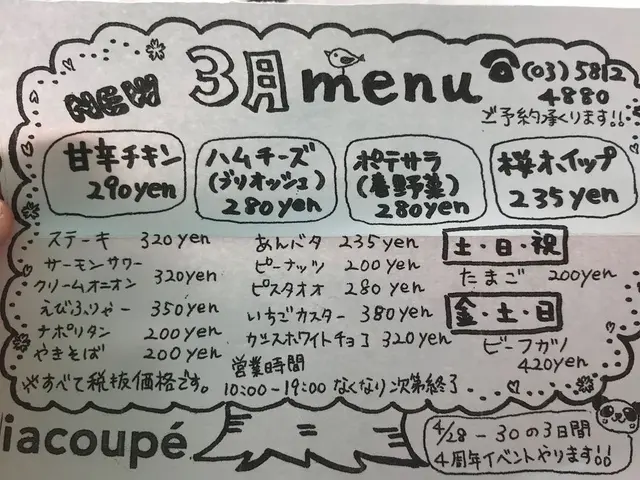 NEW 3月 menu ☎(03)5812
4880
ご予約承くります!!
甘辛チキン
290yen
ハムチーズ
(ブリオッシュ)
280yen
ポテサラ
(春野菜)
280yen
桜ホイップ
235yen
ステーキ 320yen
サーモンサワー
クリームオニオン 320yen
えびふりゃー 350yen
ナポリタン 200yen
やきそば 200yen
あんバタ 235yen
ピーナッツ 200yen
ピスタオオ 280yen
いちごカスター 380yen
カシスホワイトチョコ 320yen
土・日・祝
たまご 200yen
金・土・日
ビーフカツ
420yen
営業時間
※すべて税抜価格です。 10:00-19:00 なくなり次第終了
iacoupé
4/28-30の3日間
4周年イベントやります!!